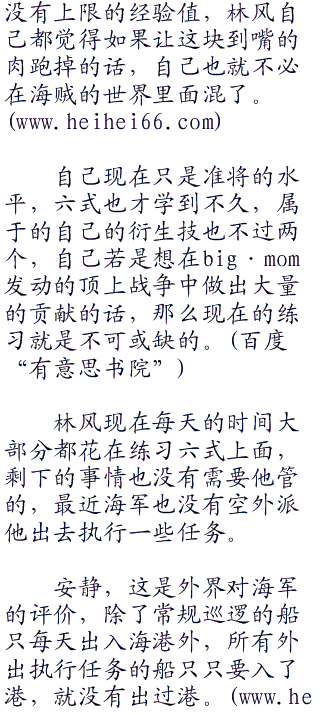 没有上限的经验值，林风自
己都觉得如果让这块到嘴的
肉跑掉的话，自己也就不必
在海贼的世界里面混了。
(www.heihei66.com)
自己现在只是准将的水
平，六式也才学到不久，属
于的自己的衍生技也不过两
个，自己若是想在big·mom
发动的顶上战争中做出大量
的贡献的话，那么现在的练
习就是不可或缺的。(百度
“有意思书院”)
林风现在每天的时间大
部分都花在练习六式上面，
剩下的事情也没有需要他管
的，最近海军也没有空外派
他出去执行一些任务。
安静，这是外界对海军
的评价，除了常规巡逻的船
只每天出入海港外，所有外
出执行任务的船只只要入了
港，就没有出过港。(www.he